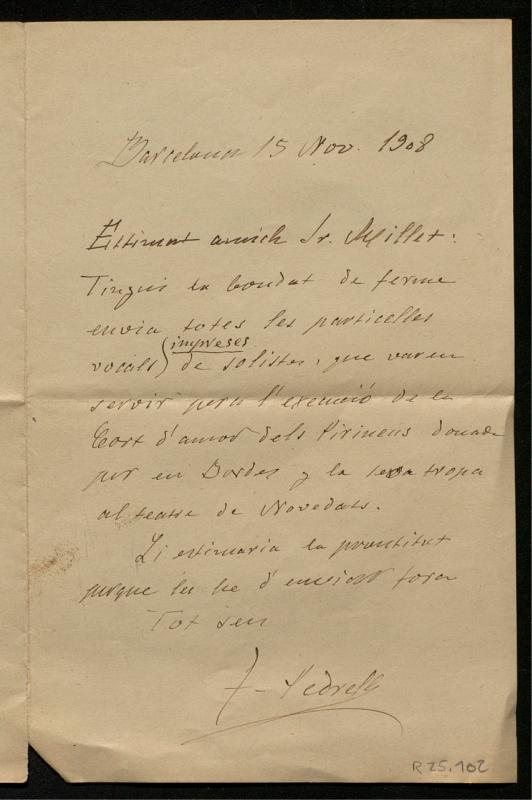 Barcelona 15 Nov. 1908
Estimat amich Sr. Millet:
Tinguis la bondat de ferme
envia totes les particelles
vocals (impreses) de solistes, que varen
servir pera l'execució de la
Cort d'amor dels Pirineus donada
per en Bordes y la seva tropa
al teatre de Novedats.
Li estimaria la prontitut
perque las he d'enviar fora
Tot seu
F. Pedrell
R 25.102